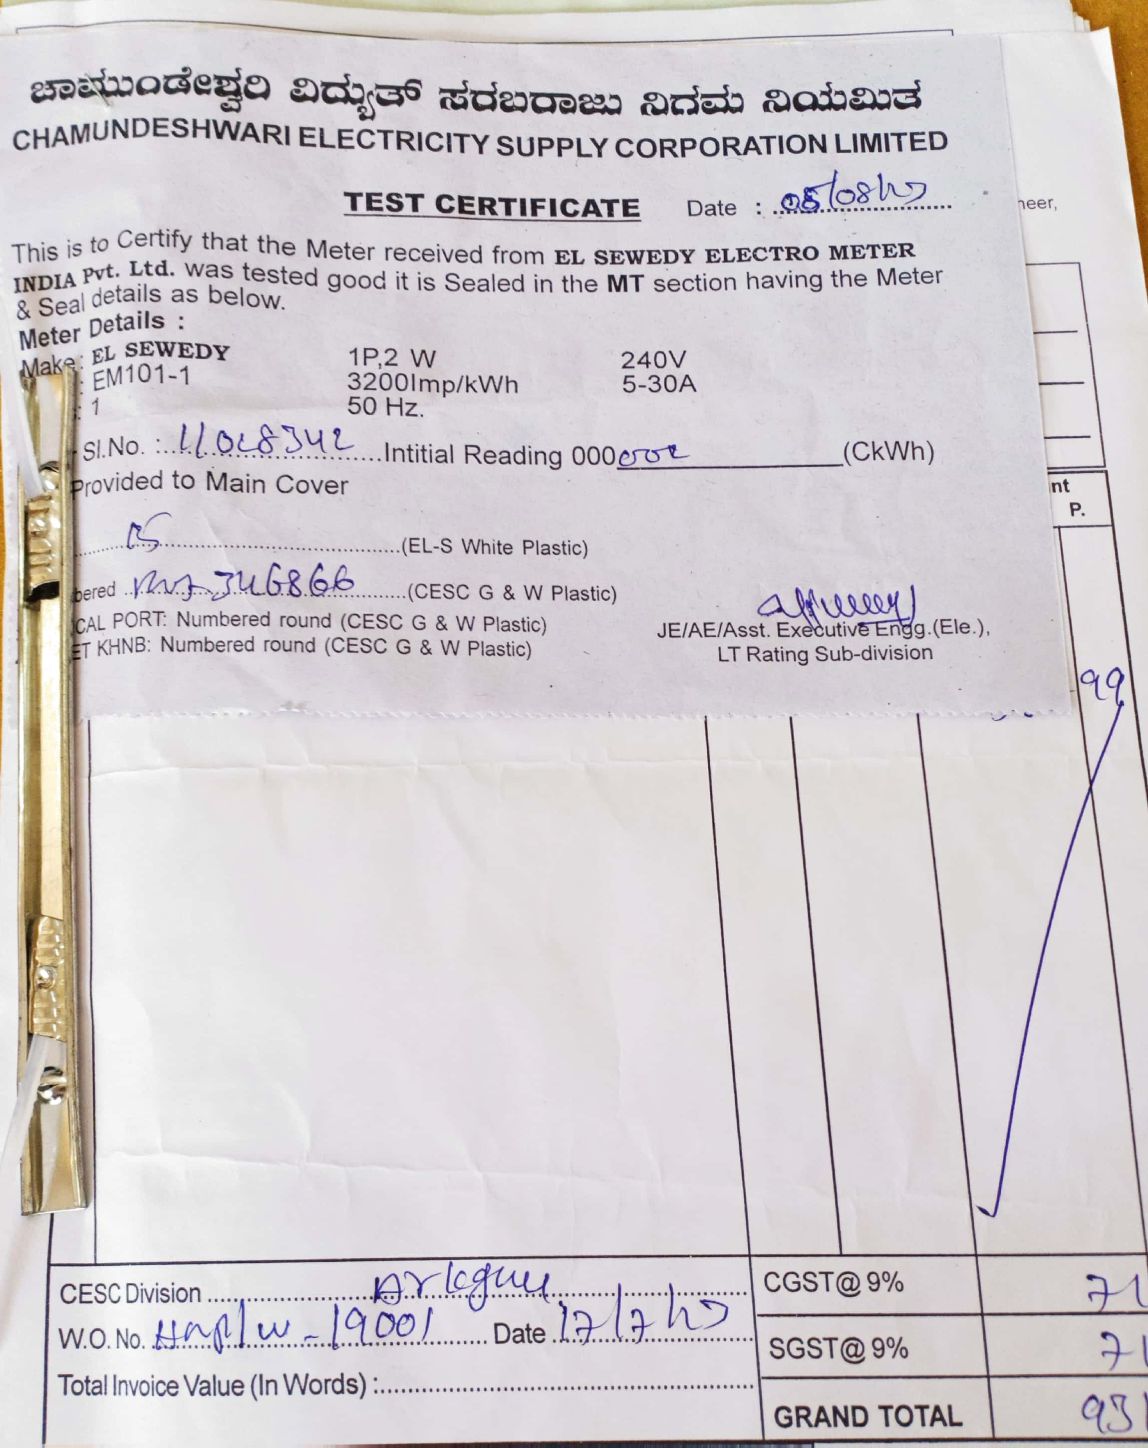 ಚಾಮುಂಡೇಶ್ವರಿ ವಿದ್ಯುತ್ ಸರಬರಾಜು ನಿಗಮ ನಿಯಮಿತ
CHAMUNDESHWARI ELECTRICITY SUPPLY CORPORATION LIMITED
TEST CERTIFICATE Date : 05/08/17
neer,
This is to Certify that the Meter received from EL SEWEDY ELECTRO METER
INDIA Pvt. Ltd. was tested good it is Sealed in the MT section having the Meter
& Seal details as below.
Meter Details :
Make : EL SEWEDY 1P,2 W 240V
: EM101-1 3200Imp/kWh 5-30A
: 1 50 Hz.
Sl.No. : Intitial Reading 000 (CkWh)
Provided to Main Cover
nt
P.
(EL-S White Plastic)
bered 346866 (CESC G & W Plastic)
CAL PORT: Numbered round (CESC G & W Plastic)
ET KHNB: Numbered round (CESC G & W Plastic)
JE/AE/Asst. Executive Engg.(Ele.),
LT Rating Sub-division
99
CESC Division
CGST@ 9% 71
W.O. No. 19001 Date 17/7/17
SGST@ 9% 71
Total Invoice Value (In Words) :
GRAND TOTAL 931